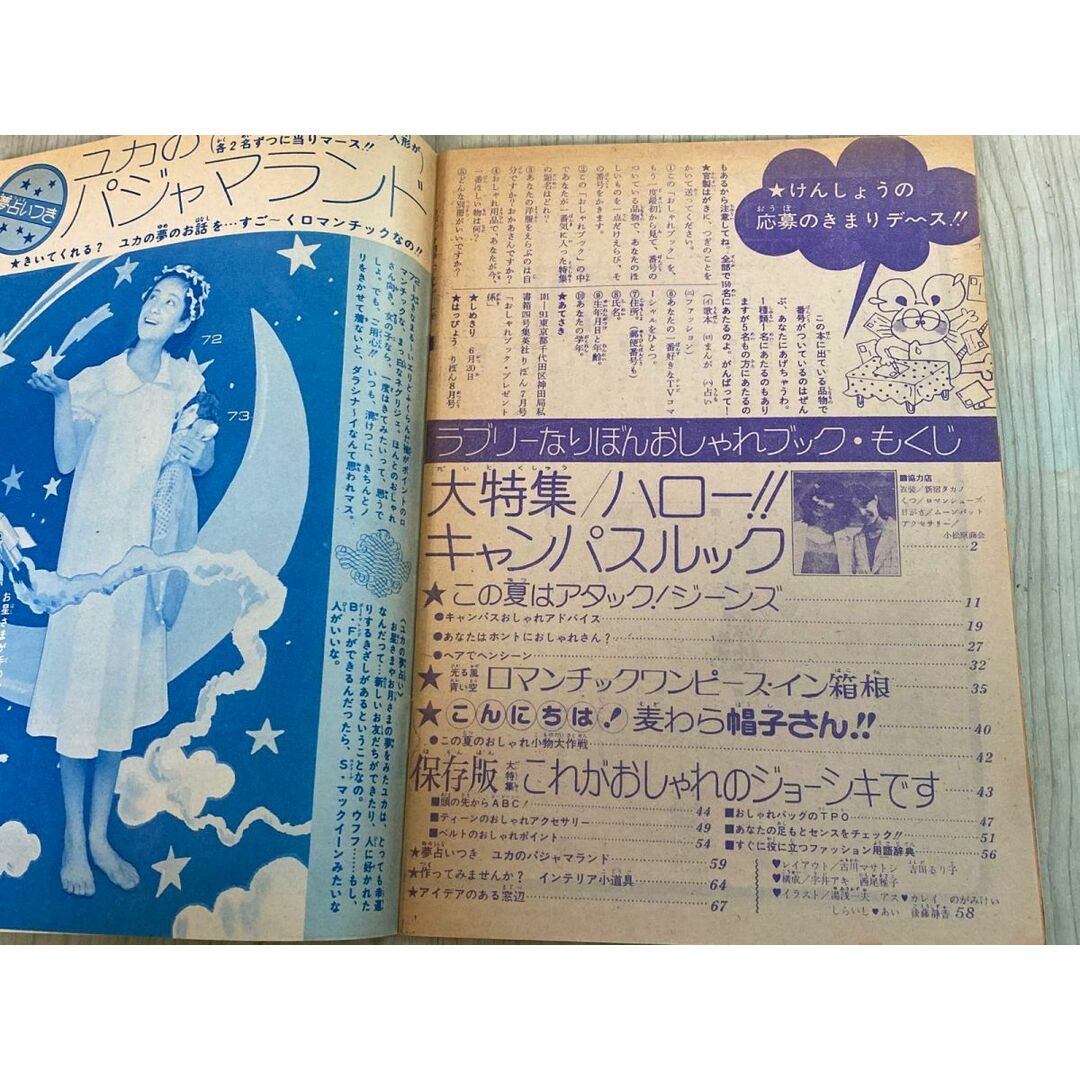 人形が
各2名ずつに当りマース!!
夢占いつき
ユカの
パジャマランド
★きいてくれる? ユカの夢のお話を…すご〜くロマンチックなの!!
72
73
72大きなまるーいエリとふくらんだ袖がポイントのロ
マンチックな、まっ白なネグリジェ。ほんとのおしゃれ
さん向き。女の子なら、一度はきてみたいって、思うで
しょ。でも、ご用心!! いつも、清けつに、きちんとノ
リをきかせて着ないと、ダラシナーイなんて思われマス。
《ユカの夢占い》
お星さまやお月さまの夢をみたユカは、とっても幸運
なんだって…新しいお友だちができたり、人に好かれた
りするきざしがあるということなの。ウフフ……もし、
B・Fができるんだったら、S・マックイーンみたいな
人がいいな。
★けんしょうの
応募のきまりデース!!
この本に出ている品物で
番号がついているのはぜん
ぶ、あなたにあげちゃうわ。
1種類1名にあたるのもあり
ますが5名もの方にあたるの
もあるから注意してね。全部で150名にあたるのよ。がんばって!
★官製はがきに、つぎのことを
かいて送ってください。
①この「おしゃれブック」を、
もう一度最初から見て、番号の
ついている品物で、あなたのほ
しいものを一点だけえらび、そ
の番号をかきます。
②この「おしゃれブック」の中
であなたが一番気に入った特集
の題名はどれ?
③あなたの洋服をえらぶのは自
分ですか?おかあさんですか?
④おしゃれ用品で、あなたが今、
一番ほしい物は何?
⑤どんな別冊がいいですか?
(イ)歌本 (ロ)まんが (ハ)占い
(ニ)ファッション
⑥あなたの一番好きなTVコマ
ーシャルをひとつ。
⑦住所。(郵便番号も)
⑧氏名。
⑨生年月日と年齢。
⑩あなたの学年
★あてさき
101-91東京都千代田区神田局私
書箱四号集英社りぼん7月号
「おしゃれブック・プレゼント
係」
★しめきり 6月20日
★はっぴょう りぼん8月号
ラブリーなりぼんおしゃれブック・もくじ
大特集/ハロー!!
キャンパスルック
■協力店
衣装/新宿タカノ
くつ/ロマンシューズ
日がさ/ムーンバット
アクセサリー/
小松原商会
2
★この夏はアタック!ジーンズ 11
●キャンパスおしゃれアドバイス 19
●あなたはホントにおしゃれさん? 27
●ヘアでヘンシーン 32
★光る風 青い空 ロマンチックワンピース・イン箱根 35
★こんにちは!麦わら帽子さん!! 40
●この夏のおしゃれ小物大作戦 42
保存版 大特集 これがおしゃれのジョーシキです 43
■頭の先からABC! 44
■ティーンのおしゃれアクセサリー 49
■ベルトのおしゃれポイント 54
■おしゃれバッグのTPO 47
■あなたの足もとセンスをチェック!! 51
■すぐに役に立つファッション用語辞典 56
★夢占いつき ユカのパジャマランド 59
★作ってみませんか? インテリア小道具 64
★アイデアのある窓辺 67
♥レイアウト/古川マサトシ 吉田るり子
♥構成/宇井アキ 西尾雅子
♥イラスト/湯浅一夫 アス♥カレイ のがみけい
しらいし♥あい 後藤静香 58